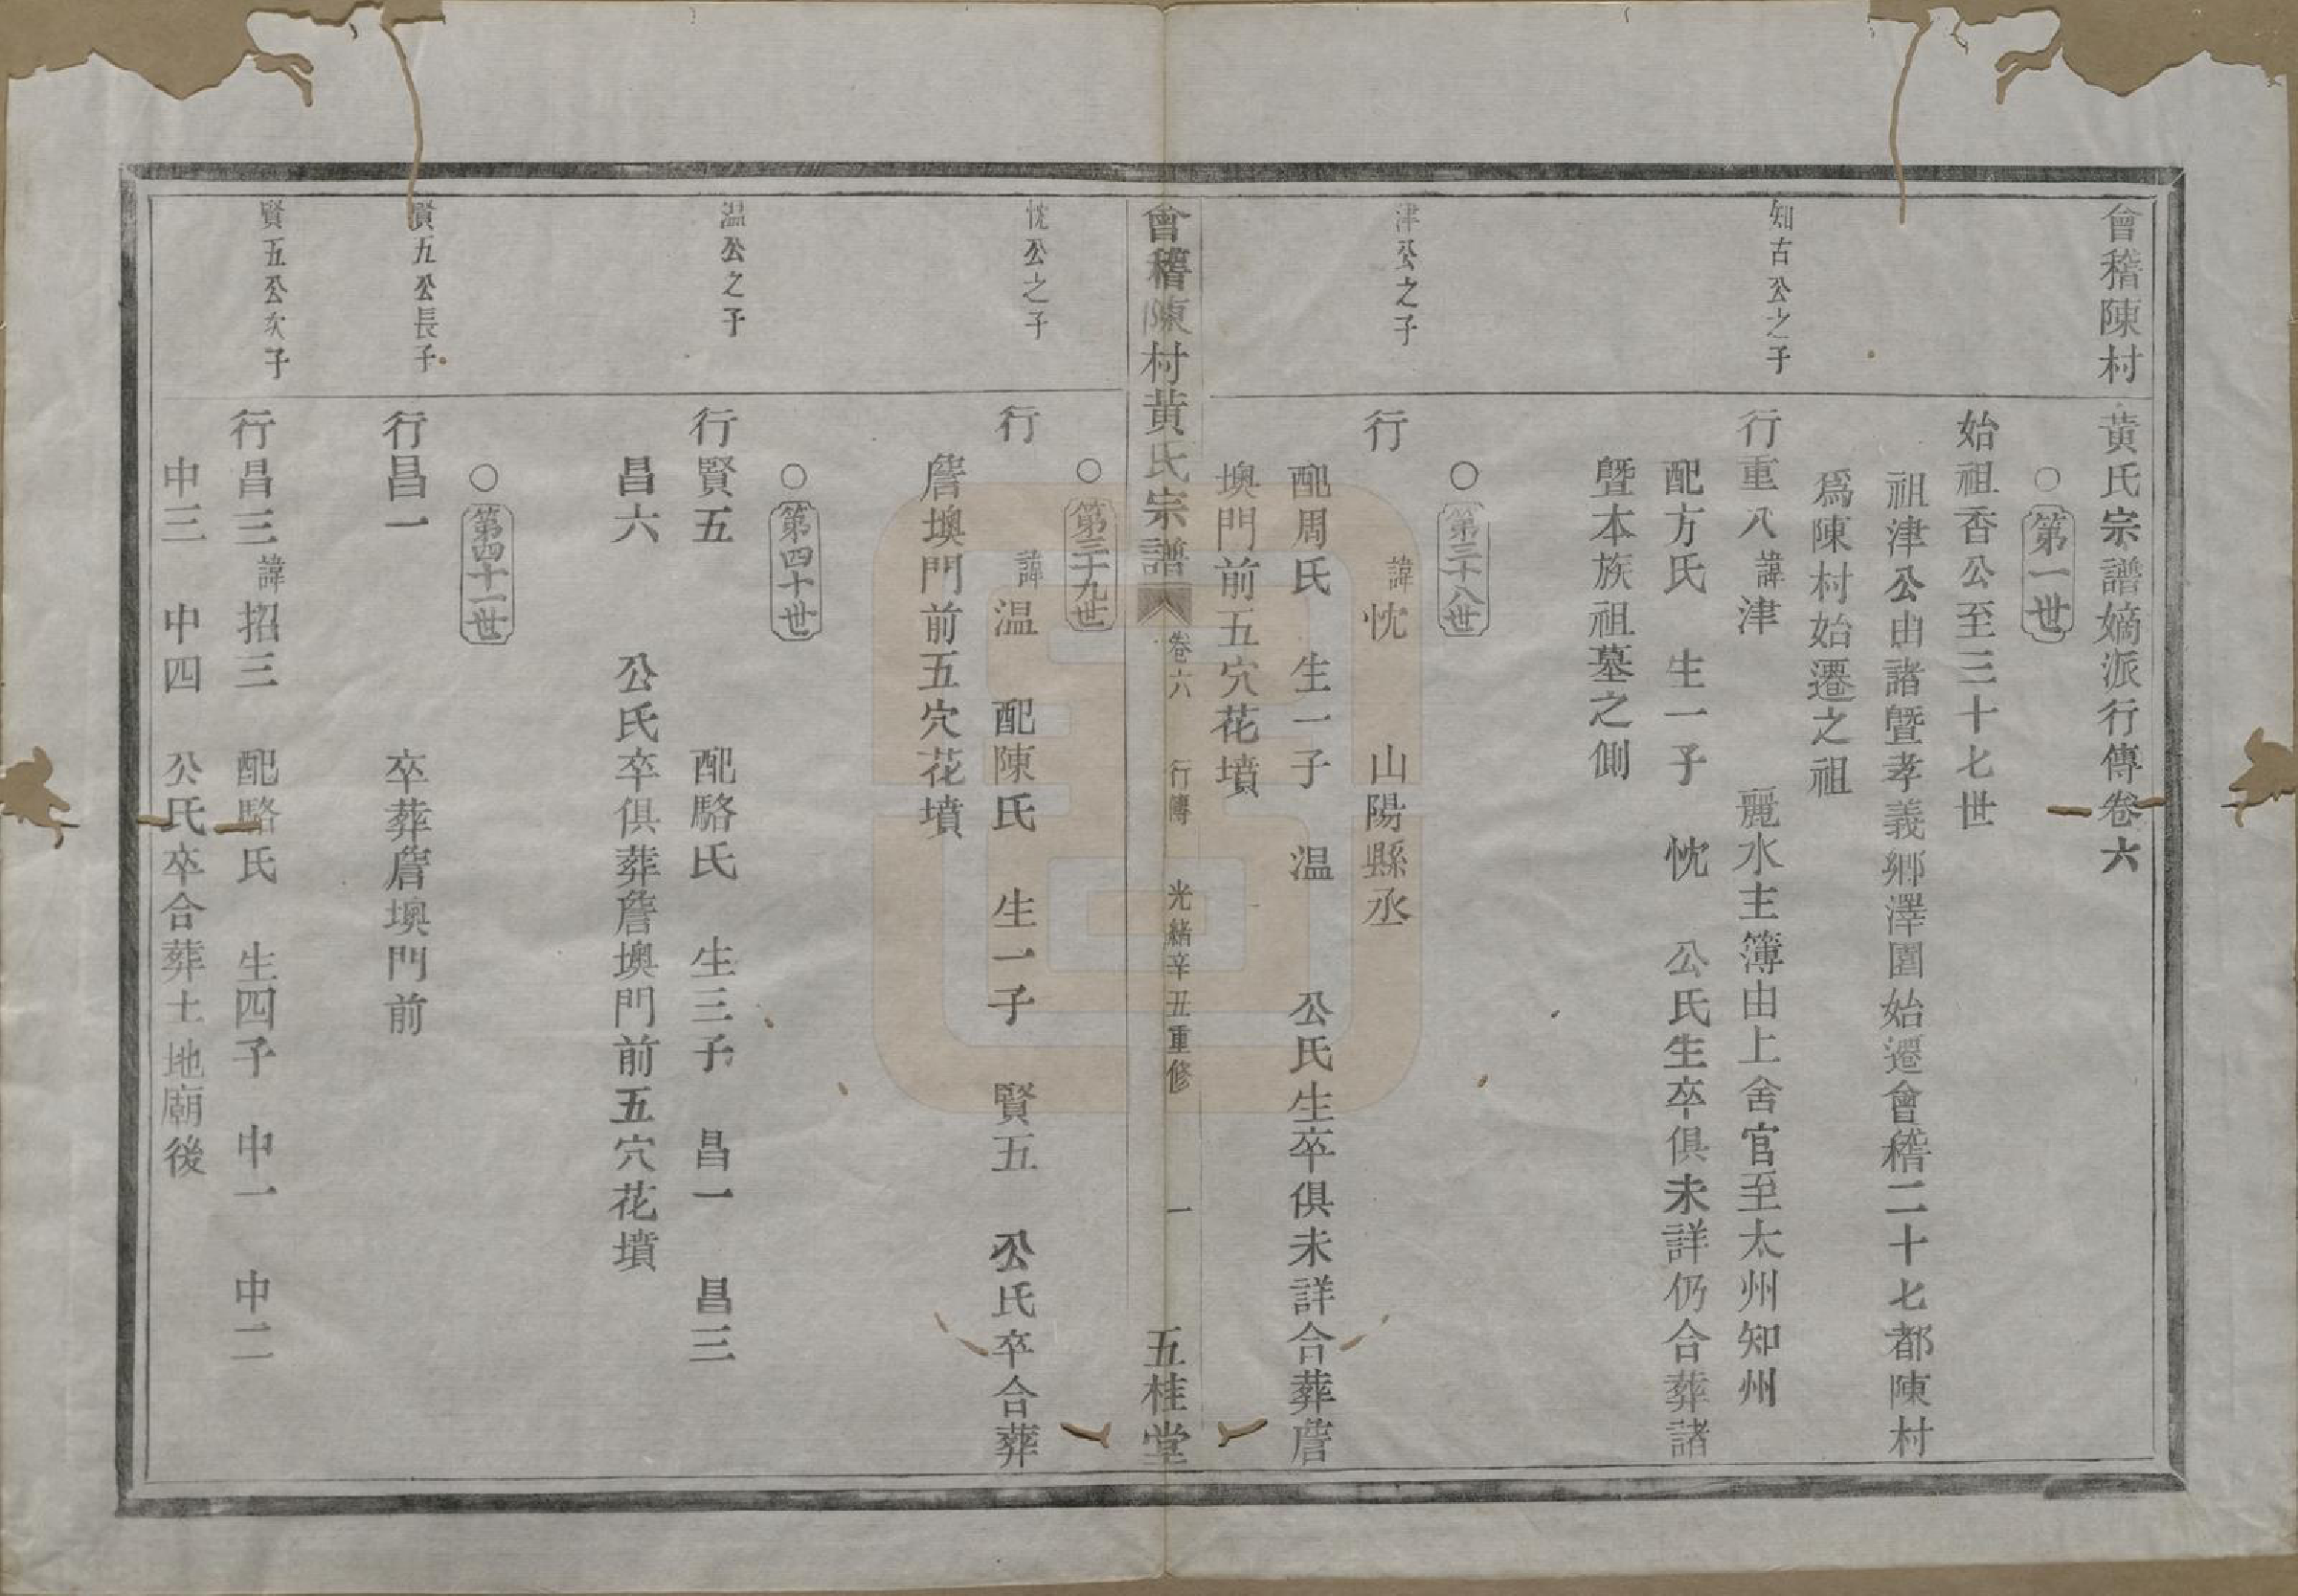 會稽陳村黃氏宗譜嫡派行傳卷六
○第一世
始祖香公至三十七世
祖津公由諸暨孝義鄉澤園始遷會稽二十七都陳村
爲陳村始遷之祖
知古公之子
行重八諱津 麗水主簿由上舍官至太州知州
配方氏 生一子 忱 公氏生卒俱未詳仍合葬諸
暨本族祖墓之側
○第三十八世
津公之子
行 諱忱 山陽縣丞
配周氏 生一子 温 公氏生卒俱未詳合葬詹
墺門前五穴花墳
會稽陳村黃氏宗譜 卷六 行傳 光緒辛丑重修 一 五桂堂
○第三十九世
忱公之子
行 諱温 配陳氏 生一子 賢五 公氏卒合葬
詹墺門前五穴花墳
○第四十世
温公之子
行賢五 配駱氏 生三子 昌一 昌三
昌六 公氏卒俱葬詹墺門前五穴花墳
○第四十一世
賢五公長子
行昌一 卒葬詹墺門前
賢五公次子
行昌三諱招三 配駱氏 生四子 中一 中二
中三 中四 公氏卒合葬土地廟後